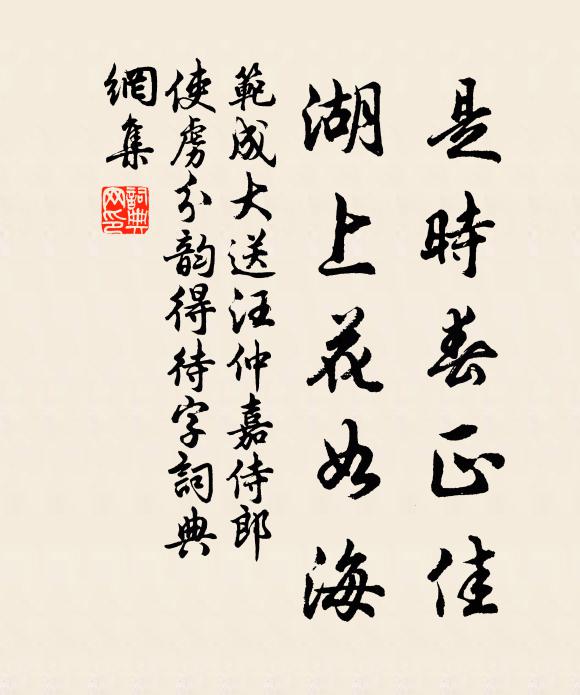 是時春正佳
湖上花如海
範成大送汪仲嘉侍郎
使虜分韵得待字詞典
網集
詞典
网印